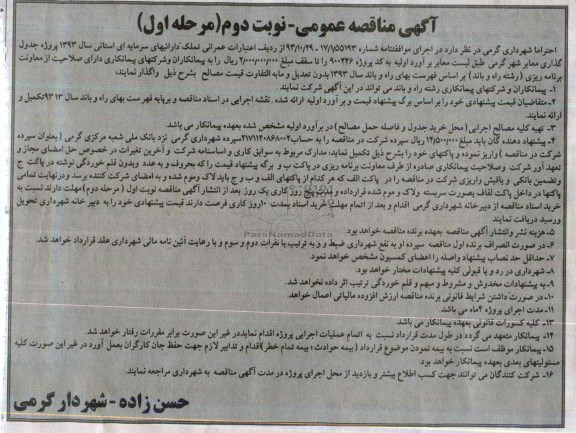 آگهی مناقصه عمومی- نوبت دوم(مرحله اول)
احتراما شهرداری گرمی در نظر دارد در اجرای موافقتنامه شماره ۱۷/۱/۵۵۱۹۳ - ۹۳/۱۰/۲۹ از ردیف اعتبارات عمرانی تملک دارائیهای سرمایه ای استانی سال ۱۳۹۳ پروژه جدول
گذاری معابر شهر گرمی طبق لیست معابر بر آورد اولیه به کد پروژه ۹۰۰۲۴۶ را تا سقف مبلغ ۲/۰۰۰/۰۰۰/۰۰۰ ریال را به پیمانکاران وشرکتهای پیمانکاری دارای صلاحیت از معاونت
برنامه ریزی (رشته راه و باند) بر اساس فهرست بهای راه و باند سال ۱۳۹۳ بدون تعدیل و مابه التفاوت قیمت مصالح بشرح ذیل واگذار نمایند:
۱- پیمانکاران و شرکتهای پیمانکاری رشته راه و باند می تواند در این آگهی شرکت نمایند.
۲- متقاضیان قیمت پیشنهادی خود را بر اساس برگ پیشنهاد قیمت و بر آورد اولیه ارائه شده , نقشه اجرایی در اسناد مناقصه و برپایه فهرست بهای راه و باند سال ۹۳ ۱۳تکمیل و
ارائه نمایند.
۳- تهیه کلیه مصالح اجرایی (محل خرید جدول و فاصله حمل مصالح) در بر آورد اولیه مشخص شده بعهده پیمانکار می باشد
۴- پیشنهاد دهنده گان باید مبلغ ۱۴/۵۰۰/۰۰۰ ریال سپرده شرکت در مناقصه را به حساب ۲۱۷۱۱۴۰۸۶۸۰۰۲سپرده شهرداری گرمی نزد بانک ملی شعبه مرکزی گرمی (بعنوان سپرده
شرکت در مناقصه) واریز نموده و پاکتهای خود را بشرح ذیل تکمیل نماید: مدارک مربوط به سوابق کاری و اساسنامه شرکت و آخرین تغیرات در خصوص حق امضای مجاز و
تعهد آور شرکت وصلاحیت پیمانکاری صادره از طرف معاونت برنامه ریزی در پاکت ب و برگه پیشنهاد قیمت را که بحروف و به عدد وبدون قلم خوردگی نوشته در پاکت ج
وتضمین بانکی و یافیش واریزی شرکت در مناقصه را در پاکت الف که هر کدام از پاکتهای الف و ب و ج باید لاک ومهر شده و به امضای شرکت کننده برسد ودرنهایت تمامی
پاکتها در داخل پاکت لفاف بصورت سربسته ولاک و موم شده قرارداده و تا پایان روز کاری یک روز بعد از انتشار آگهی مناقصه نوبت اول (مرحله دوم) مهلت دارند نسبت به
خرید اسناد مناقصه از دبیر خانه شهرداری گرمی اقدام و بعد از اتمام مهلت خرید اسناد بمدت ۱۰روز کاری فرصت دارند قیمت پیشنهادی خود را به دبیر خانه شهرداری تحویل
ورسید دریافت نمایند.
۵- هزینه نشر وانتشار آگهی مناقصه بعهده برنده مناقصه خواهد بود.
۶- در صورت انصراف برنده اول مناقصه سپرده او به نفع شهرداری ضبط و و به ترتیب با نفرات دوم و سوم و با رعایت آئین نامه مالی شهرداری عقد قرارداد خواهد شد.
۷- حداقل حد نصاب پیشنهاد واصله را اعضای کمسیون مشخص خواهد نمود.
۸- شهرداری در رد و یا قبولی کلیه پیشنهادات مختار خواهد بود.
۹- به پیشنهادات مخدوش و مشروط و مبهم و قلم خوردگی ترتیب اثر داده نخواهد شد.
۱۰- در صورت داشتن شرایط قانونی برنده مناقصه ارزش افزوده مالیاتی اعمال خواهد.
۱۱- مدت اجرای پروژه ۴ماه می باشد.
۱۳- کلیه کسورات قانونی بعهده پیمانکار می باشد
۱۴- پیمانکار متعهد می گردد در طول مدت قرارداد نسبت به اتمام عملیات اجرایی پروژه اقدام نمایددر غیر این صورت برابر مقررات رفتار خواهد شد.
۱۵- پیمانکار موظف است نسبت به بیمه نمودن موضوع قرارداد (بیمه حوادث ؛ بیمه تمام خطر)اقدام و تدابیر لازم جهت حفظ جان کارگران بعمل آورد در غیر این صورت کلیه
مسئولیتهای بعدی بعهده پیمانکار خواهد بود.
۱۶- شرکت کنندگان می توانند جهت کسب اطلاع بیشتر و بازدید از محل اجرای پروژه در مدت آگهی مناقصه به شهرداری مراجعه نمایند.
حسن زاده - شهردار گرمی